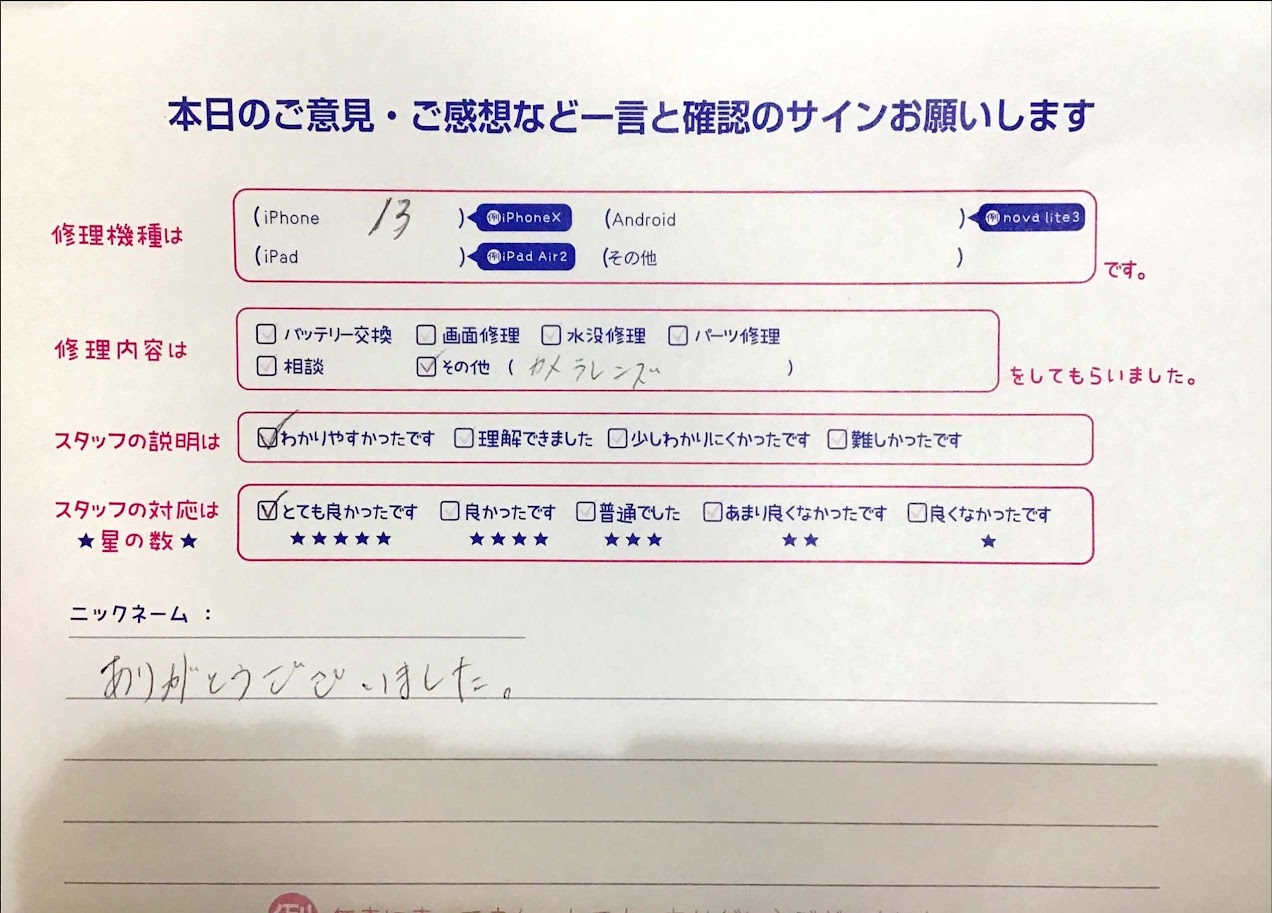 本日のご意見・ご感想など一言と確認のサインお願いします
修理機種は
(iPhone 13 ) 例iPhoneX (Android ) 例nova lite3
(iPad ) 例iPad Air2 (その他 )
です。
修理内容は
バッテリー交換 画面修理 水没修理 パーツ修理
相談 その他 ( カメラレンズ )
をしてもらいました。
スタッフの説明は
わかりやすかったです 理解できました 少しわかりにくかったです 難しかったです
スタッフの対応は
★星の数★
とても良かったです 良かったです 普通でした あまり良くなかったです 良くなかったです
★★★★★ ★★★★ ★★★ ★★ ★
ニックネーム :
ありがとうございました。
例